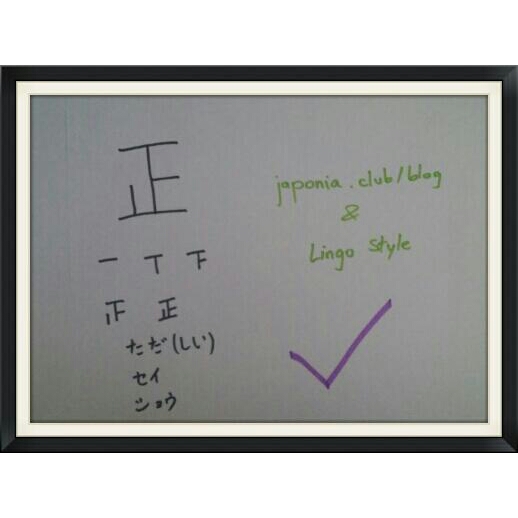 正
一 丅 下
𤴓 正
ただ(しい)
セイ
ショウ
japonia.club/blog
&
Lingo Style